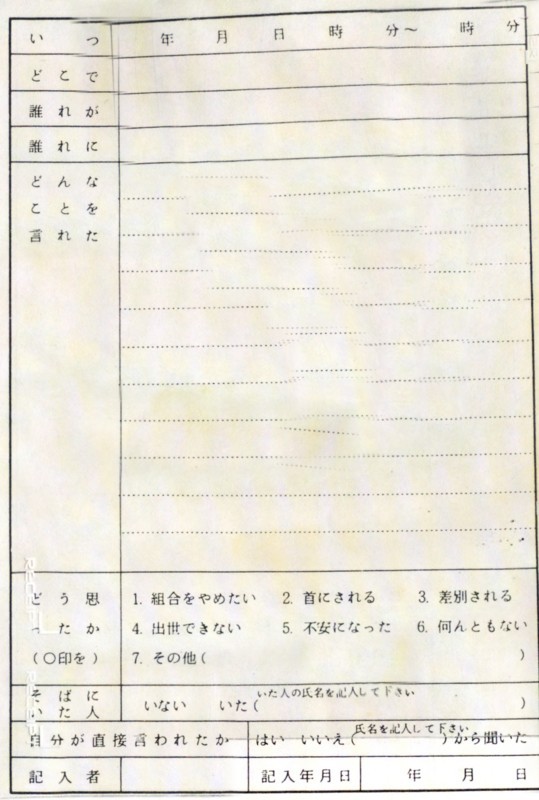 いつ 年 月 日 時 分～ 時 分
どこで
誰れが
誰れに
どんな
ことを
言れた
どう思 1. 組合をやめたい 2. 首にされる 3. 差別される
ったか 4. 出世できない 5. 不安になった 6. 何んともない
(〇印を) 7. その他( )
いた人の氏名を記入して下さい
そばに
いた人 いない いた( )
氏名を記入して下さい
自分が直接言われたか はい いいえ( )から聞いた
記入者 記入年月日 年 月 日